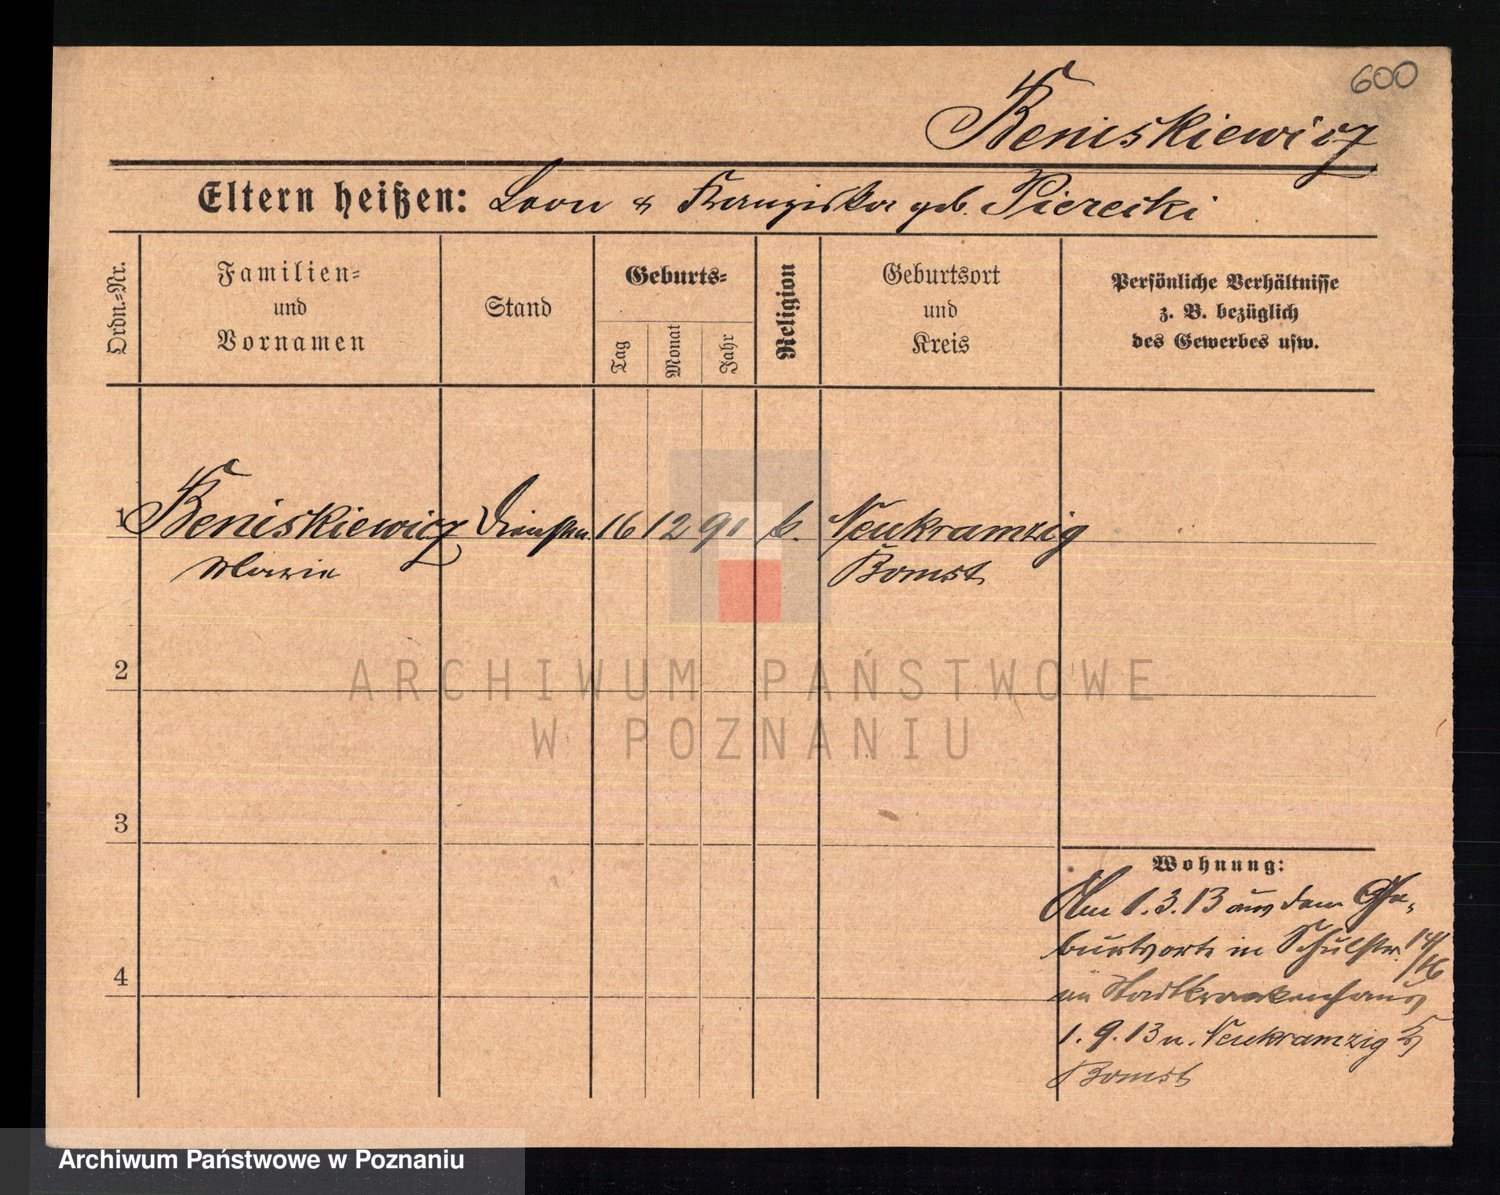 600
Beniskiewicz
Eltern heißen: Leon & Franziska geb. Pierecki
Ordn.-Nr.
Familien- und Vornamen
Stand
Geburts-
Tag
Monat
Jahr
Religion
Geburtsort und Kreis
Persönliche Verhältnisse
z. B. bezüglich
des Gewerbes usw.
1 Beniskiewicz 16 12 91 k. Neukramzig
Marie Bomst
2
3
4
Wohnung:
Am 1.3.13 aus dem Ge-
burtsorte in Schulstr. 14/16
im Stadtkrankenhaus
1.9.13 n. Neukramzig Kr
Bomst
ARCHIWUM PAŃSTWOWE
W POZNANIU
Archiwum Państwowe w Poznaniu